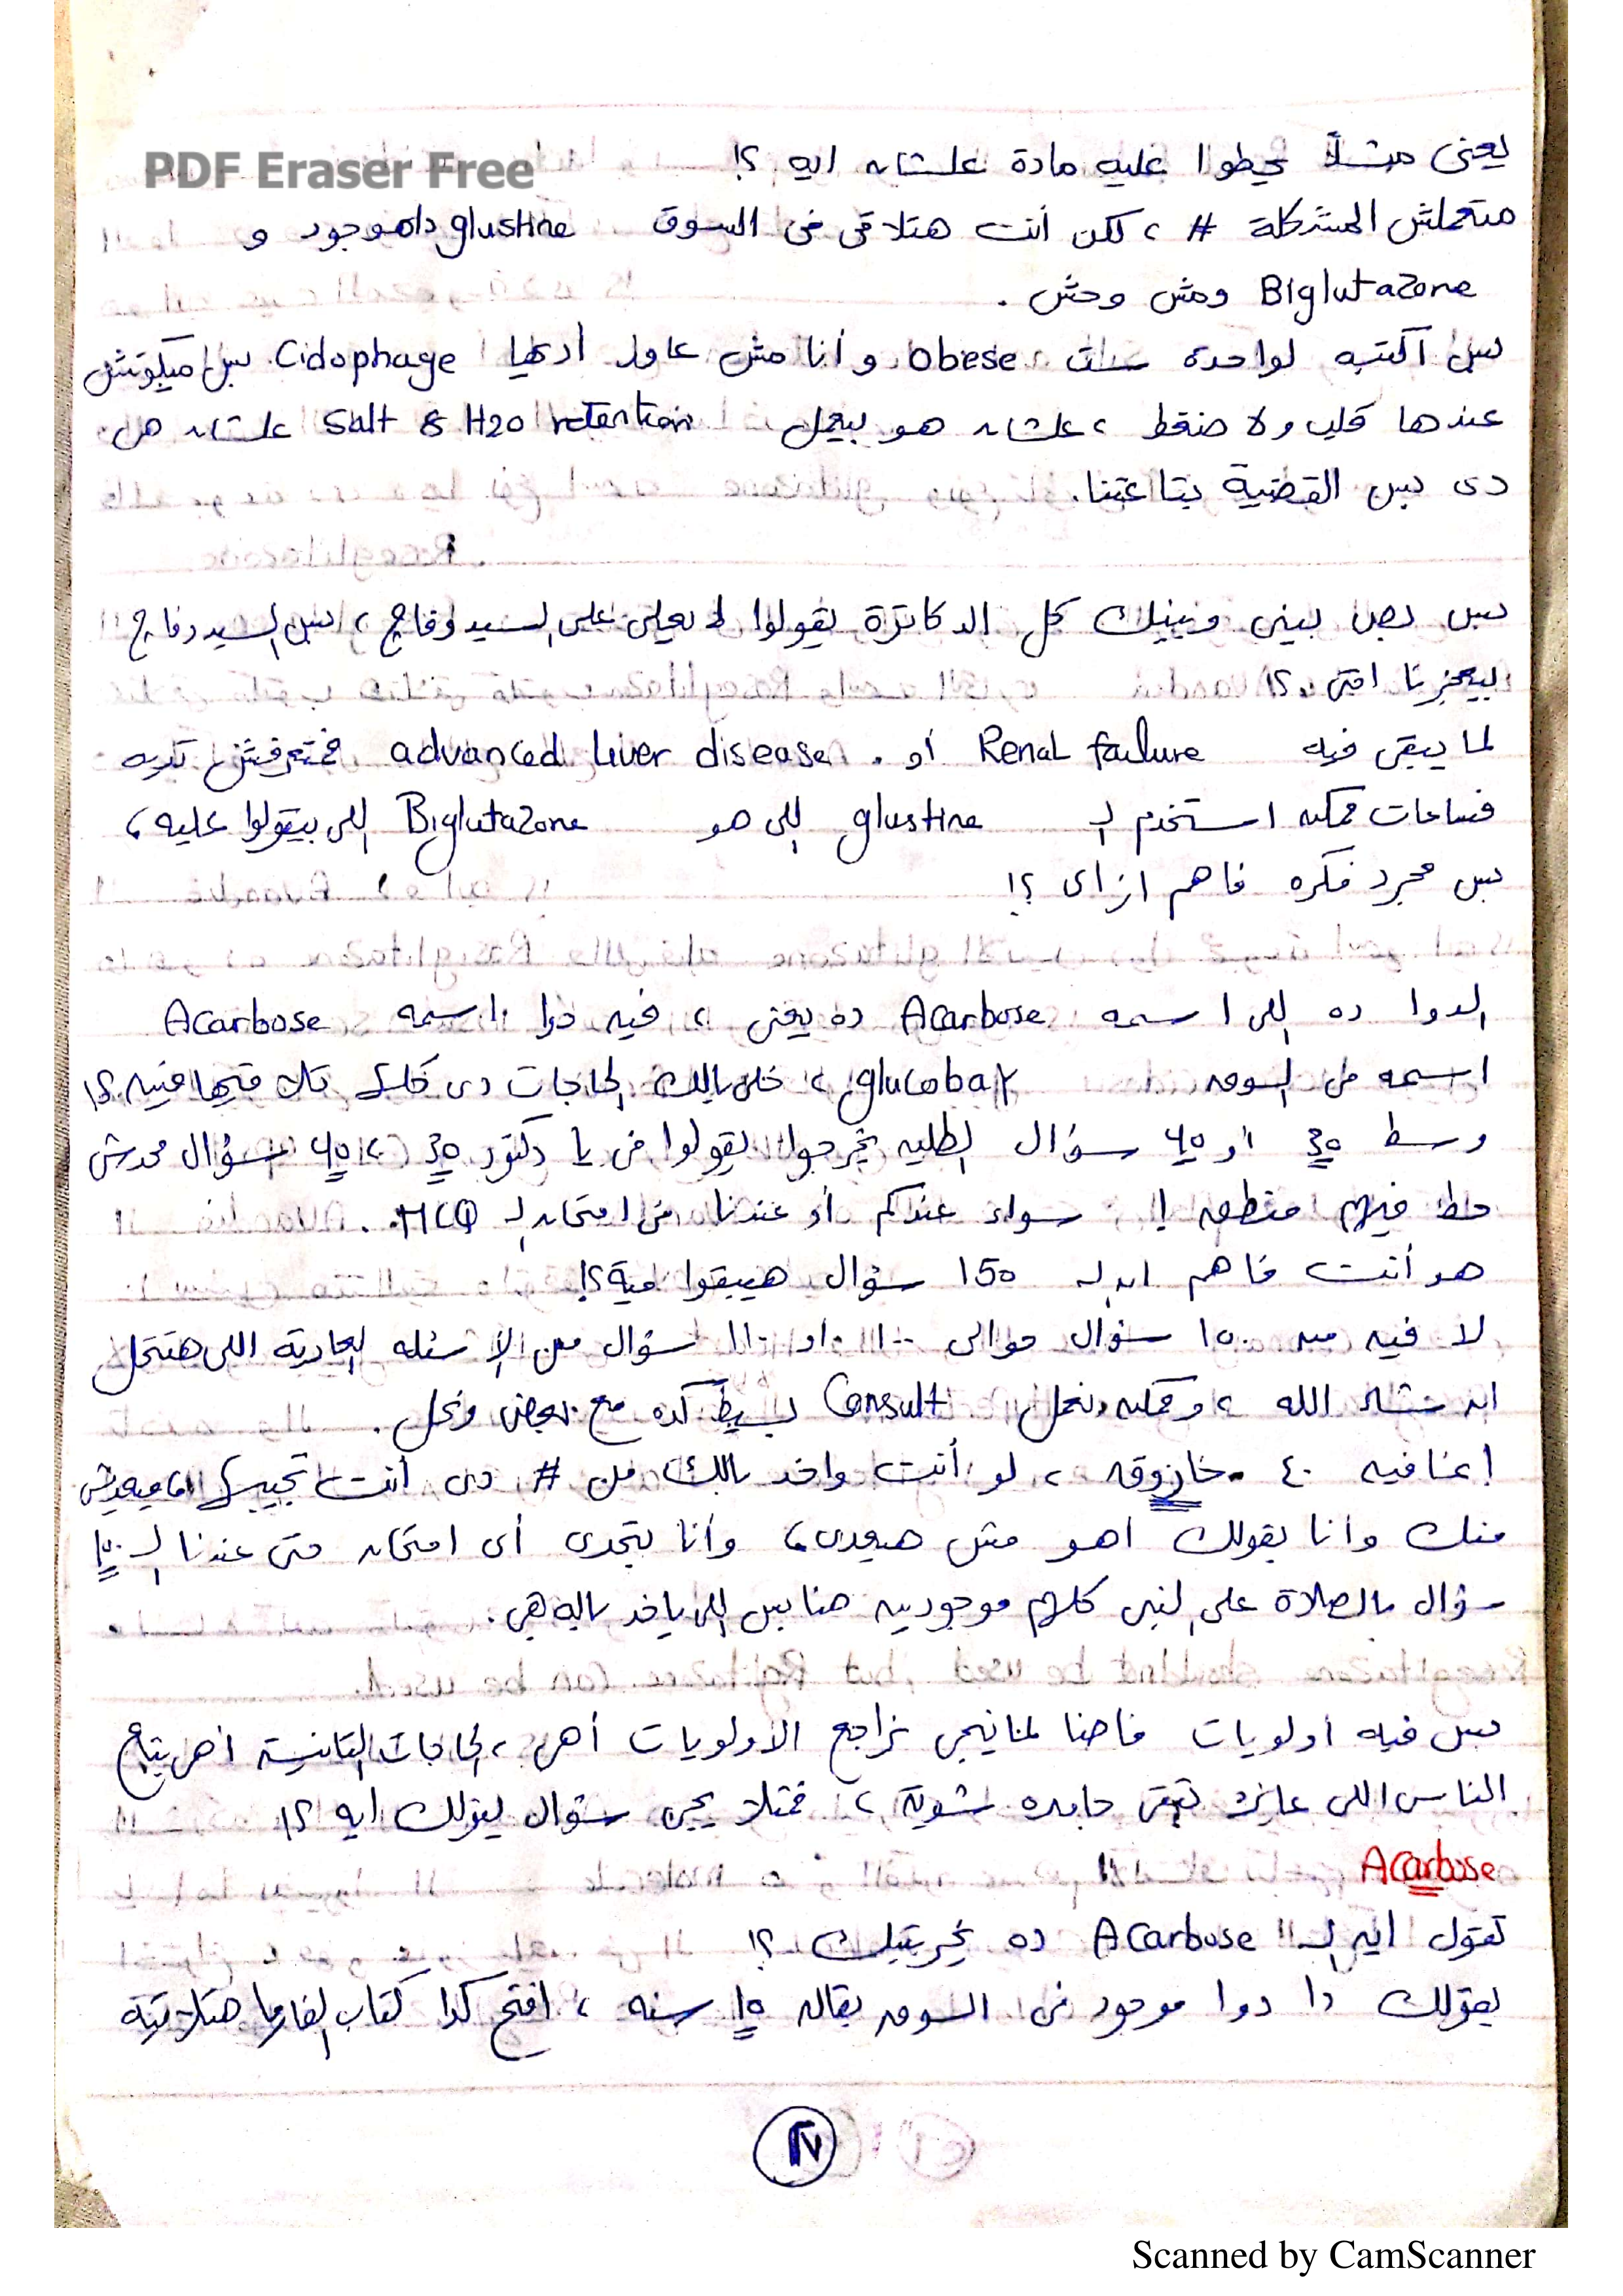 PDF Eraser Free
يعنى مثلاً يحطوا عليه مادة علشان ايه ؟!
متعملش المشكلة # ، لكن أنت هتلاقى فى السوق glustine دا موجود و
Biglutazone ومش وحش .
بس اكتبه لواحدة ست obese و أنا مش عاوز أديها Cidophage بس ميكونش
عندها قلب ولا ضغط ، علشان هو بيعمل Salt & H2O retention علشان هى
دى بس القضية بتاعتنا.
بس بص بينى وبينك كل الدكاترة يقولوا لا يعلى على السيدوفاج ، بس السيدوفاج
بيعجزنا امتى ؟!
لما يبقى فيه Renal failure أو advanced liver disease فمتعرفش تديه
فساعات ممكن استخدم لـ glustine اللى هو Biglutazone اللى بيقولوا عليه ،
بس مجرد فكره فاهم ازاى ؟!
الدوا ده اللى اسمه Acarbose ده يعنى ، فيه دوا اسمه Acarbose
اسمه فى السوق glucobay ، خلى بالك الحاجات دى كلها تلاقيها فين ؟!
وسط 30 أو 40 سؤال الطلبه يخرجوا يقولوا فى يا دكتور 30 ، 40 سؤال محدش
حط فيهم منطق !! سواء عندكم أو عندنا فى امتحان لـ MCQ .
هو أنت فاهم ان لـ 150 سؤال هيبقوا مية ؟!
لا فيه من ١٥٠ سؤال حوالى ١٠٠ او ١١٠ سؤال من الاسئله العادية اللى هتتحل
ان شاء الله ، وممكن نعمل Consult بسيط كده مع بعض ونحل .
إنما فيه ٤٠ خازوق ، لو أنت واخد بالك من # دى أنت تجيبها ، ما ميعديش
منك وأنا بقولك اهو مش هيعدى ، وأنا بتحدى أى امتحان حتى عندنا لـ ١٥٠
سؤال بالصلاة على النبى كلهم موجودين هنا بس اللى ياخد باله هى .
بس فيه اولويات فاحنا لما نيجى نراجع الاولويات أهى ، الحاجات التانية اهى بتاع
الناس اللى عايزة تبقى جامده شوية ، فمثلا يجى سؤال يقولك ايه ؟!
Acarbose
تقول ايه لـ" Acarbose ده بخريتك ؟!
يقولك دا دوا موجود فى السوق بقاله 15 سنه ، افتح كدا كتاب الفارما هتلاقيه
٢٧
Scanned by CamScanner